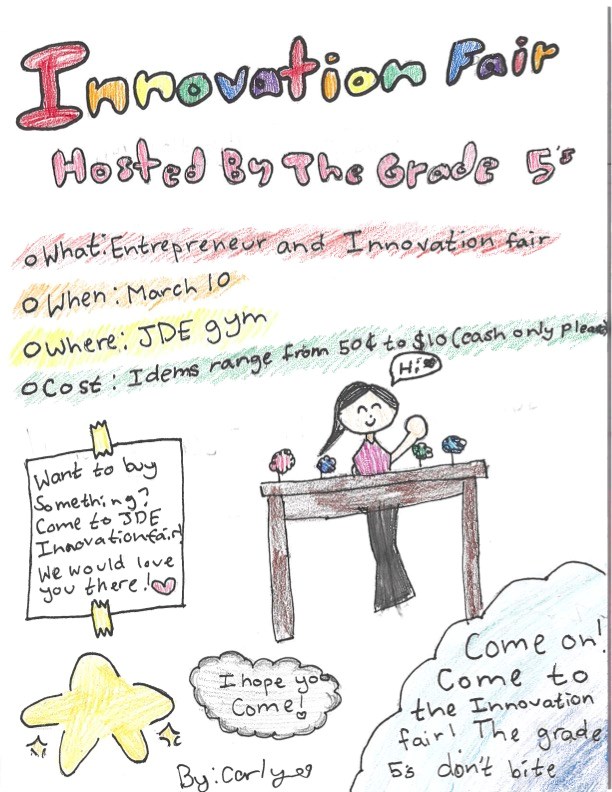 Innovation Fair
Hosted By The Grade 5's
What: Entrepreneur and Innovation fair
When: March 10
Where: JDE gym
Cost: Idems range from 50¢ to $10 (cash only please)
Hi
Want to buy
Something?
Come to JDE
Innovationfair
We would love
you there!
I hope you
Come!
Come on!
Come to
the Innovation
fair! The grade
5's don't bite
By: Carly